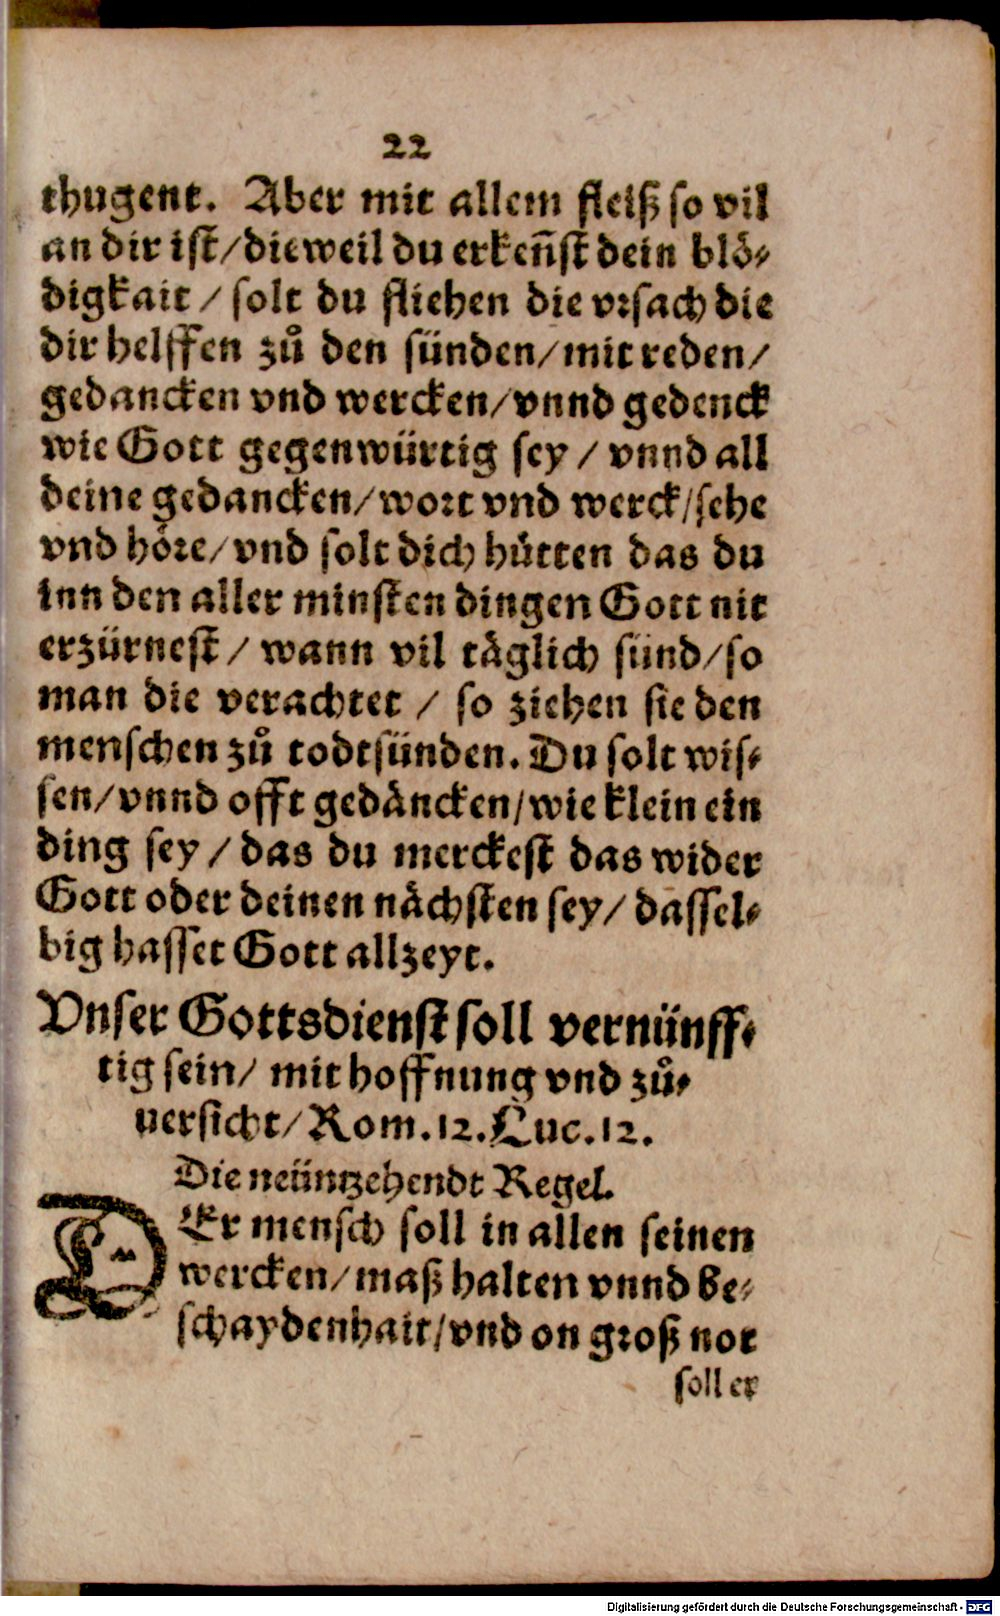 22
thugent. Aber mit allem fleiß so vil
an dir ist/dieweil du erkeñst dein blö-
digkait / solt du fliehen die vrsach die
dir helffen zů den sünden/mit reden/
gedancken vnd wercken/vnnd gedenck
wie Gott gegenwürtig sey / vnnd all
deine gedancken/wort vnd werck/sehe
vnd höre/vnd solt dich hütten das du
inn den aller minsten dingen Gott nit
erzürnest / wann vil täglich sünd/so
man die verachtet / so ziehen sie den
menschen zů todtsünden. Du solt wis-
sen/vnnd offt gedäncken/wie klein ein
ding sey / das du merckest das wider
Gott oder deinen nächsten sey/ dassel-
big hasset Gott allzeyt.
Vnser Gottsdienst soll vernünff-
tig sein/ mit hoffnung vnd zů-
uersicht/Rom.12.Luc.12.
Die neüntzehendt Regel.
DEr mensch soll in allen seinen
wercken/maß halten vnnd be-
schaydenhait/vnd on groß not
soll er
Digitalisierung gefördert durch die Deutsche Forschungsgemeinschaft - DFG